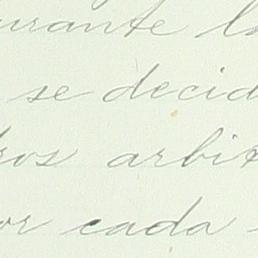 urante l
se decid
ros arbit
or cada